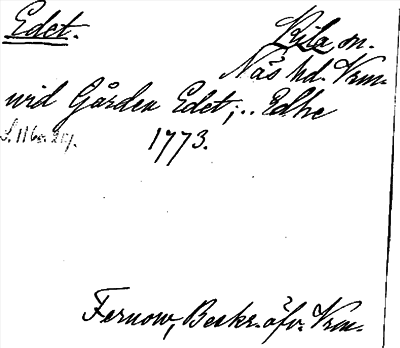 Edet.
Kila sn.
Näs hd. Vrm.
vid Gården Edet;.. Edhe
1773.
Fernow, Beskr. öfv. Vrm.